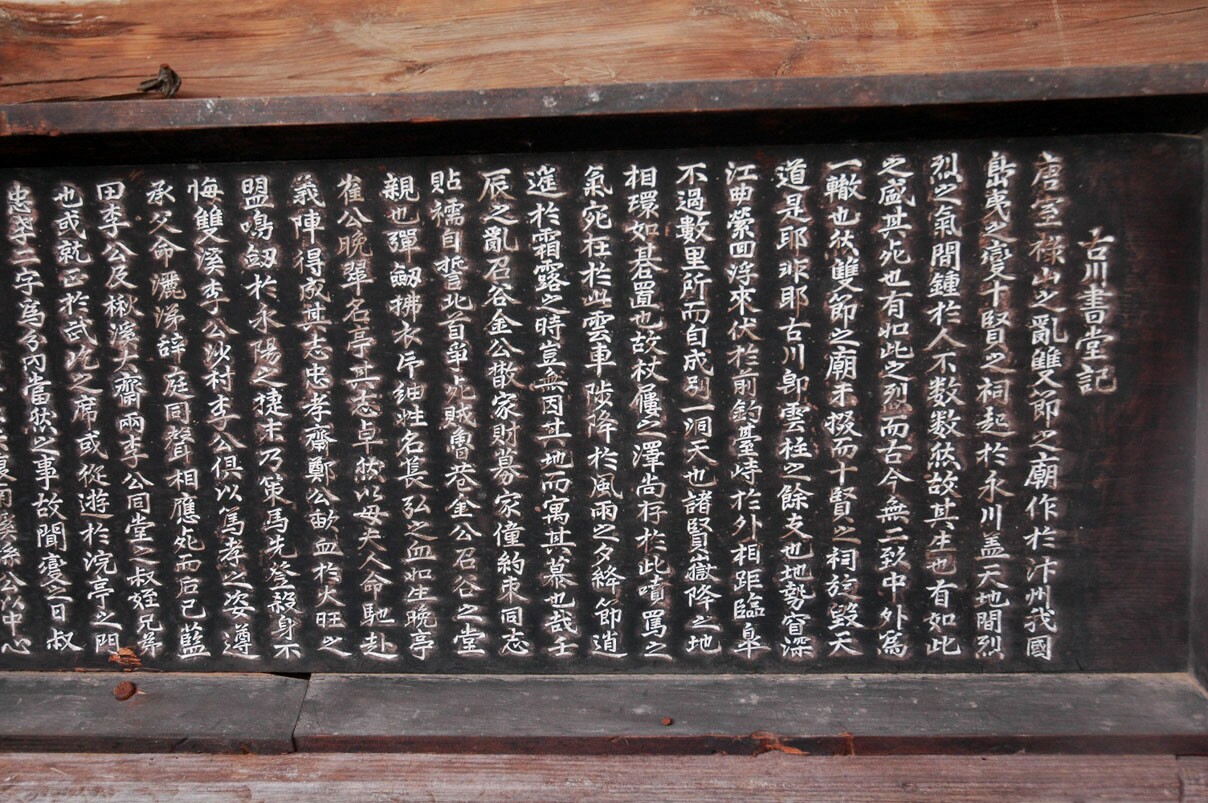 古川書堂記
唐室祿山之亂雙節之廟作於汴州我國
島夷之變十賢之祠起於永川盖天地間烈
烈之氣間鍾於人不数数然故其生也有如此
之盛其死也有如此之烈而古今無二致中外爲
一轍也然雙節之廟未掇而十賢之祠旋毀天
道是耶非耶古川卽雲柱之餘支也地勢窅深
江曲縈回洊來伏於前釣臺峙於外相距臨皐
不過數里所而自成别一洞天也諸賢嶽降之地
相環如碁置也故杖屨之澤尚存於此噴罵之
氣宛在於此雲車陟降於風雨之夕絳節逍
遙於霜露之時豈無因其地而寓其慕也哉壬
辰之亂召谷金公散家財募家僮約束同志
貼襦自誓北首爭死賊魯巷金公召谷之堂
親也彈劒拂衣斥紬姓名長弘之血如生晚亭
崔公晚翠名亭其志卓然以母夫人命馳赴
義陣得成其志忠孝齋鄭公歃血於火旺之
盟鳴劒於永陽之捷末乃策馬先登殺身不
悔雙溪李公沙村李公俱以篤孝之姿遵
承父命灑涕辞庭同聲相應死而后已藍
田李公及楸溪大齋兩李公同堂之叔姪兄弟
也或就正於武屹之席或從遊於浣亭之門
忠孝二字爲分內當然之事故聞變之日叔